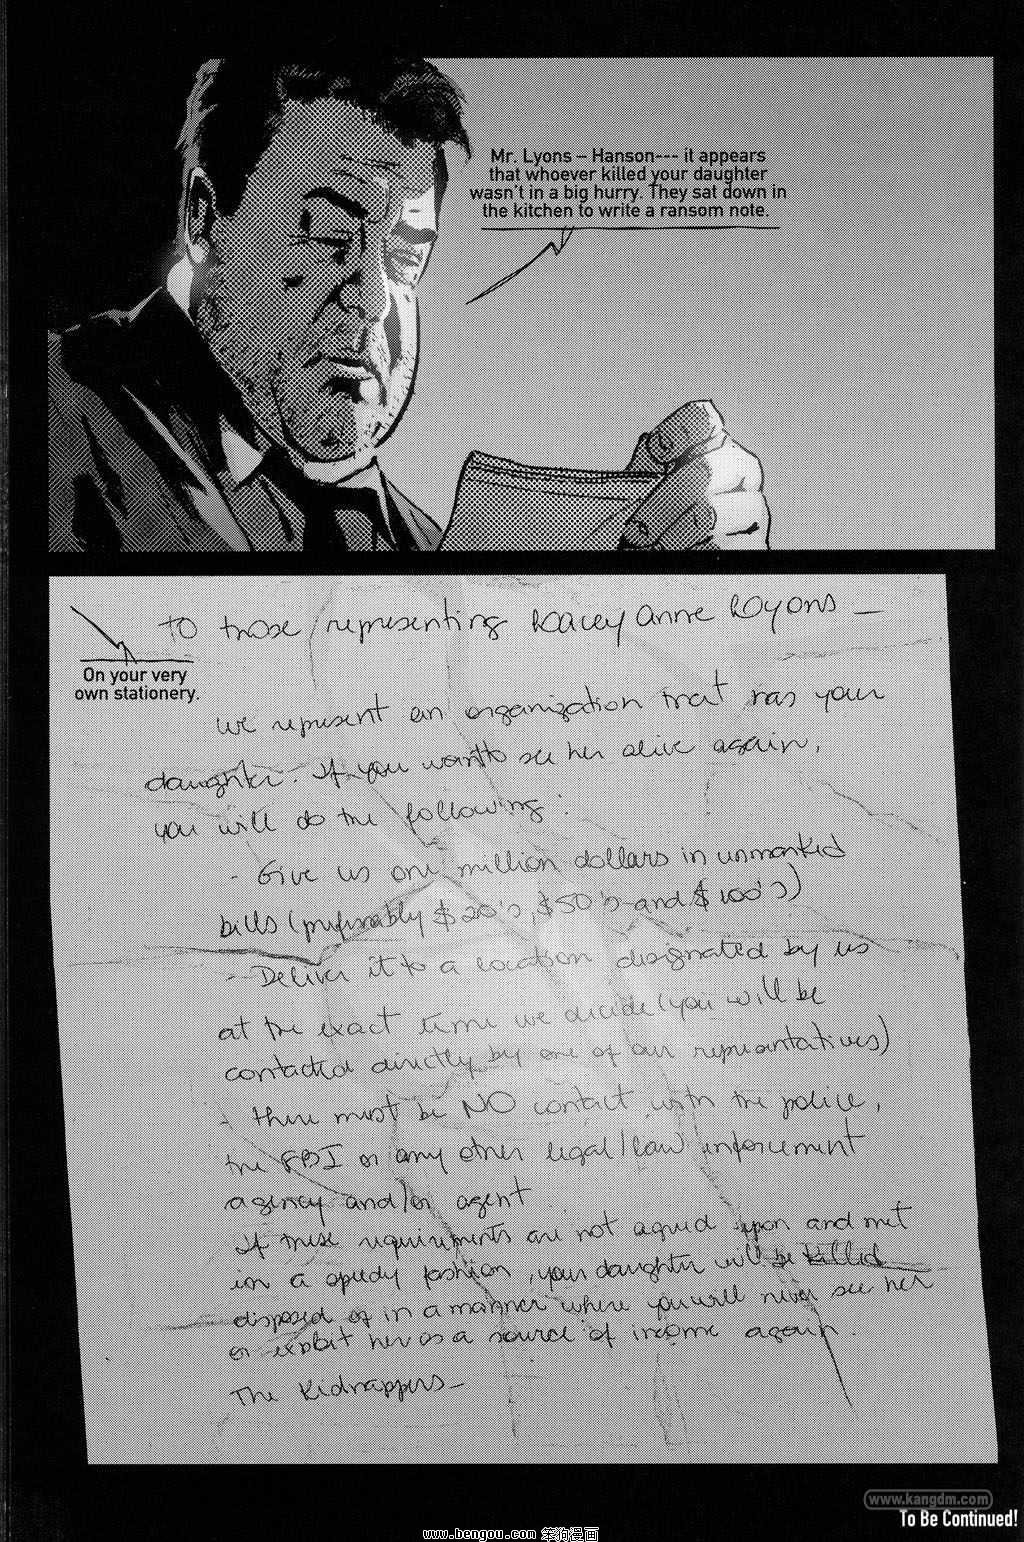 Mr. Lyons – Hanson--- it appears
that whoever killed your daughter
wasn't in a big hurry. They sat down in
the kitchen to write a ransom note.
To those representing Kacey Anne Lyons —
On your very
own stationery.
We represent an organization that has your
daughter. If you want to see her alive again,
you will do the following:
- Give us one million dollars in unmarked
bills (preferably $20's, $50's and $100's)
- Deliver it to a location designated by us
at the exact time we decide (you will be
contacted directly by one of our representatives)
- there must be NO contact with the police,
the FBI or any other legal/law enforcement
agency and/or agent
If these requirements are not agreed upon and met
in a speedy fashion, your daughter will be killed
disposed of in a manner where you will never see her
or exploit her as a source of income again.
The Kidnappers—
www.kangdm.com
To Be Continued!
www.bengou.com 笨狗漫画